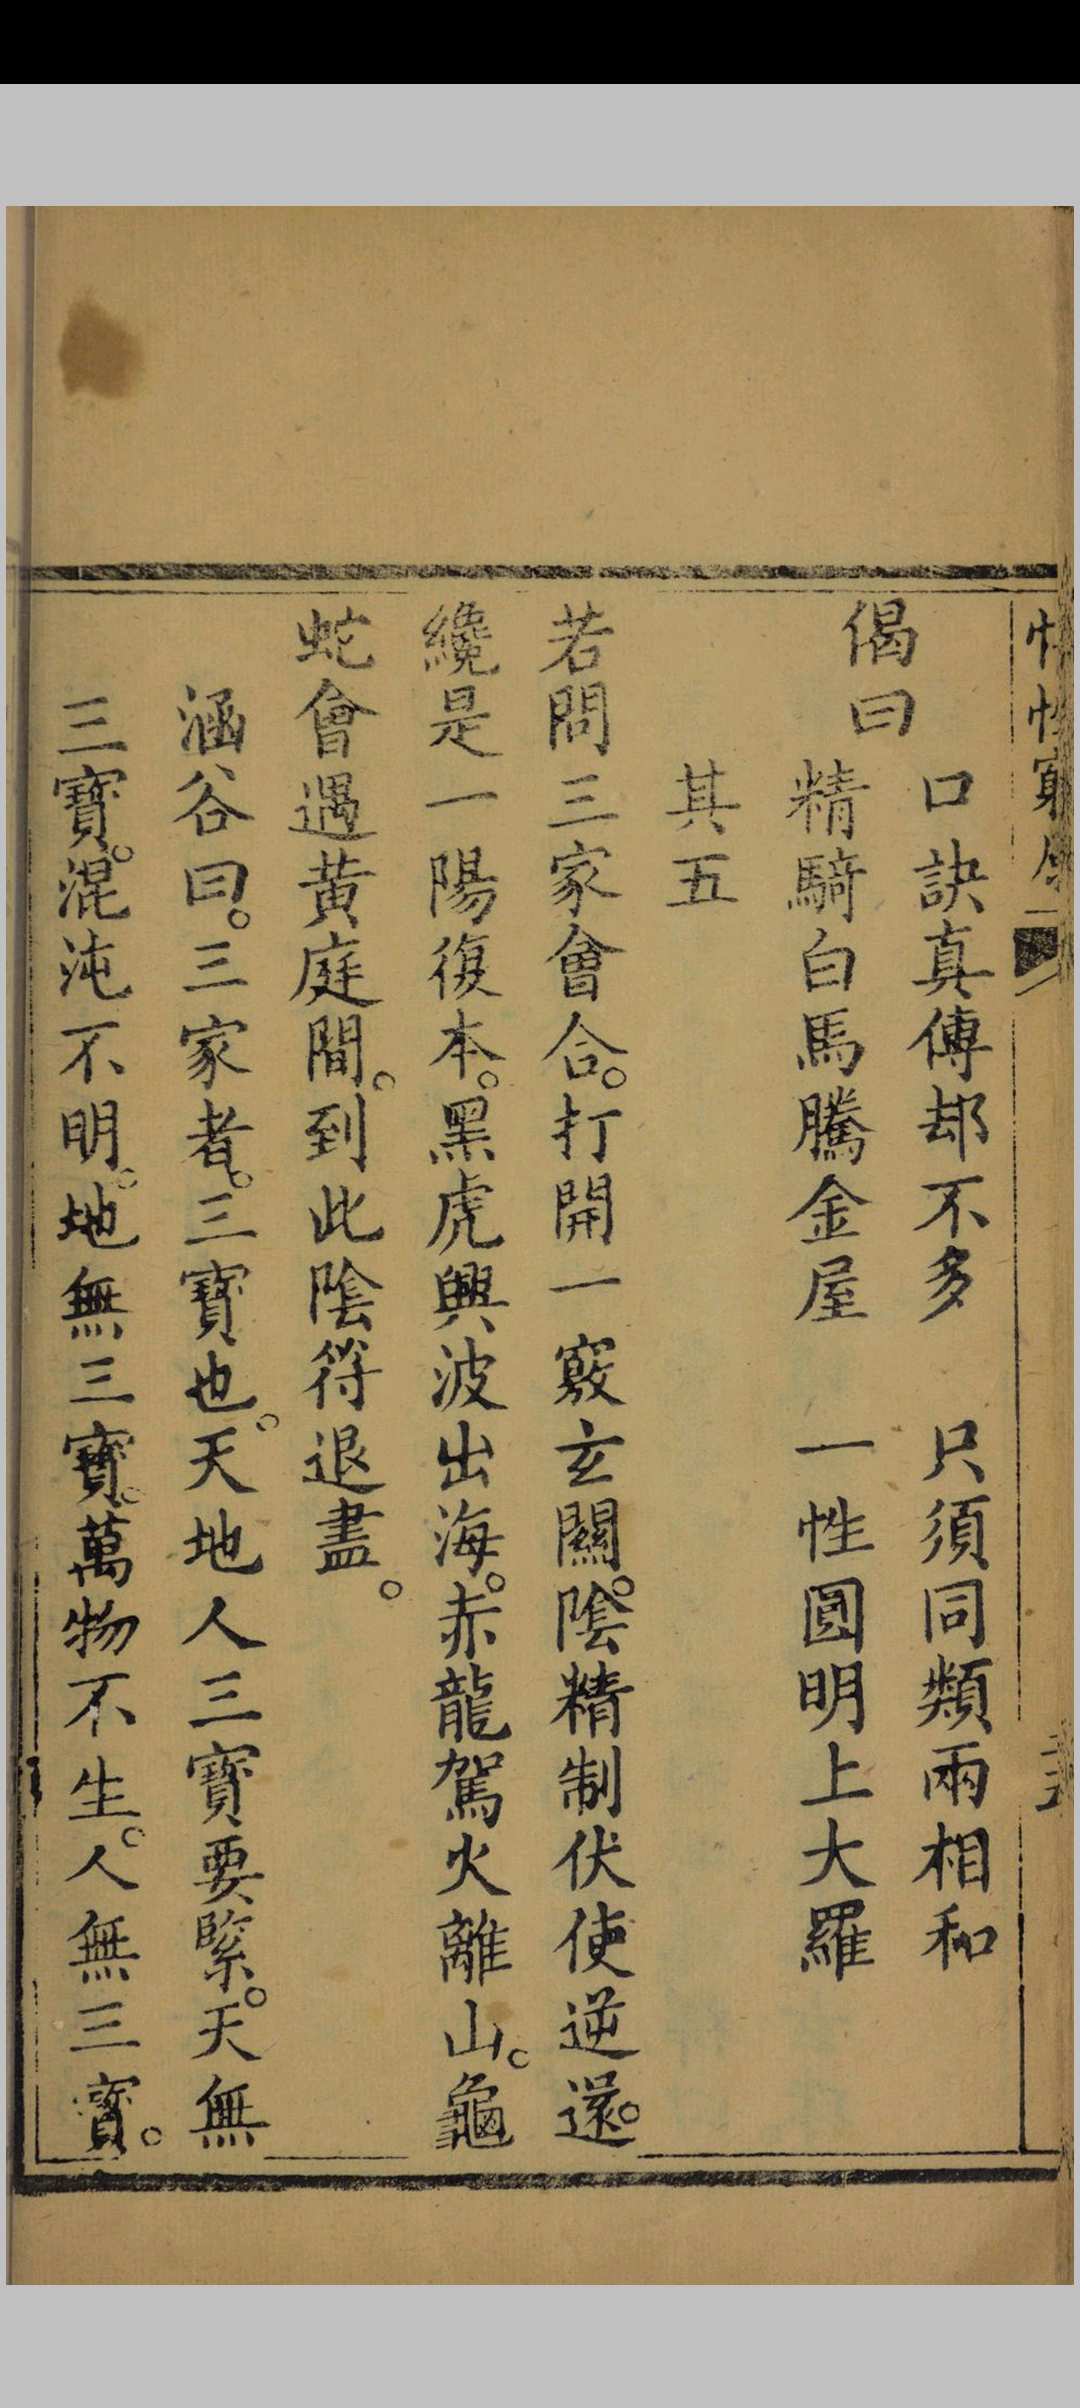 偈曰
口訣真傳却不多　只須同類兩相和
精騎白馬騰金屋　一性圓明上大羅
其五
若問三家會合。打開一竅玄關。陰精制伏使逆還。
纔是一陽復本。黑虎興波出海。赤龍駕火離山。龜
蛇會遇黄庭間。到此陰符退盡。
涵谷曰。三家者。三寶也。天地人三寶要緊。天無
三寶。混沌不明。地無三寶。萬物不生。人無三寶。